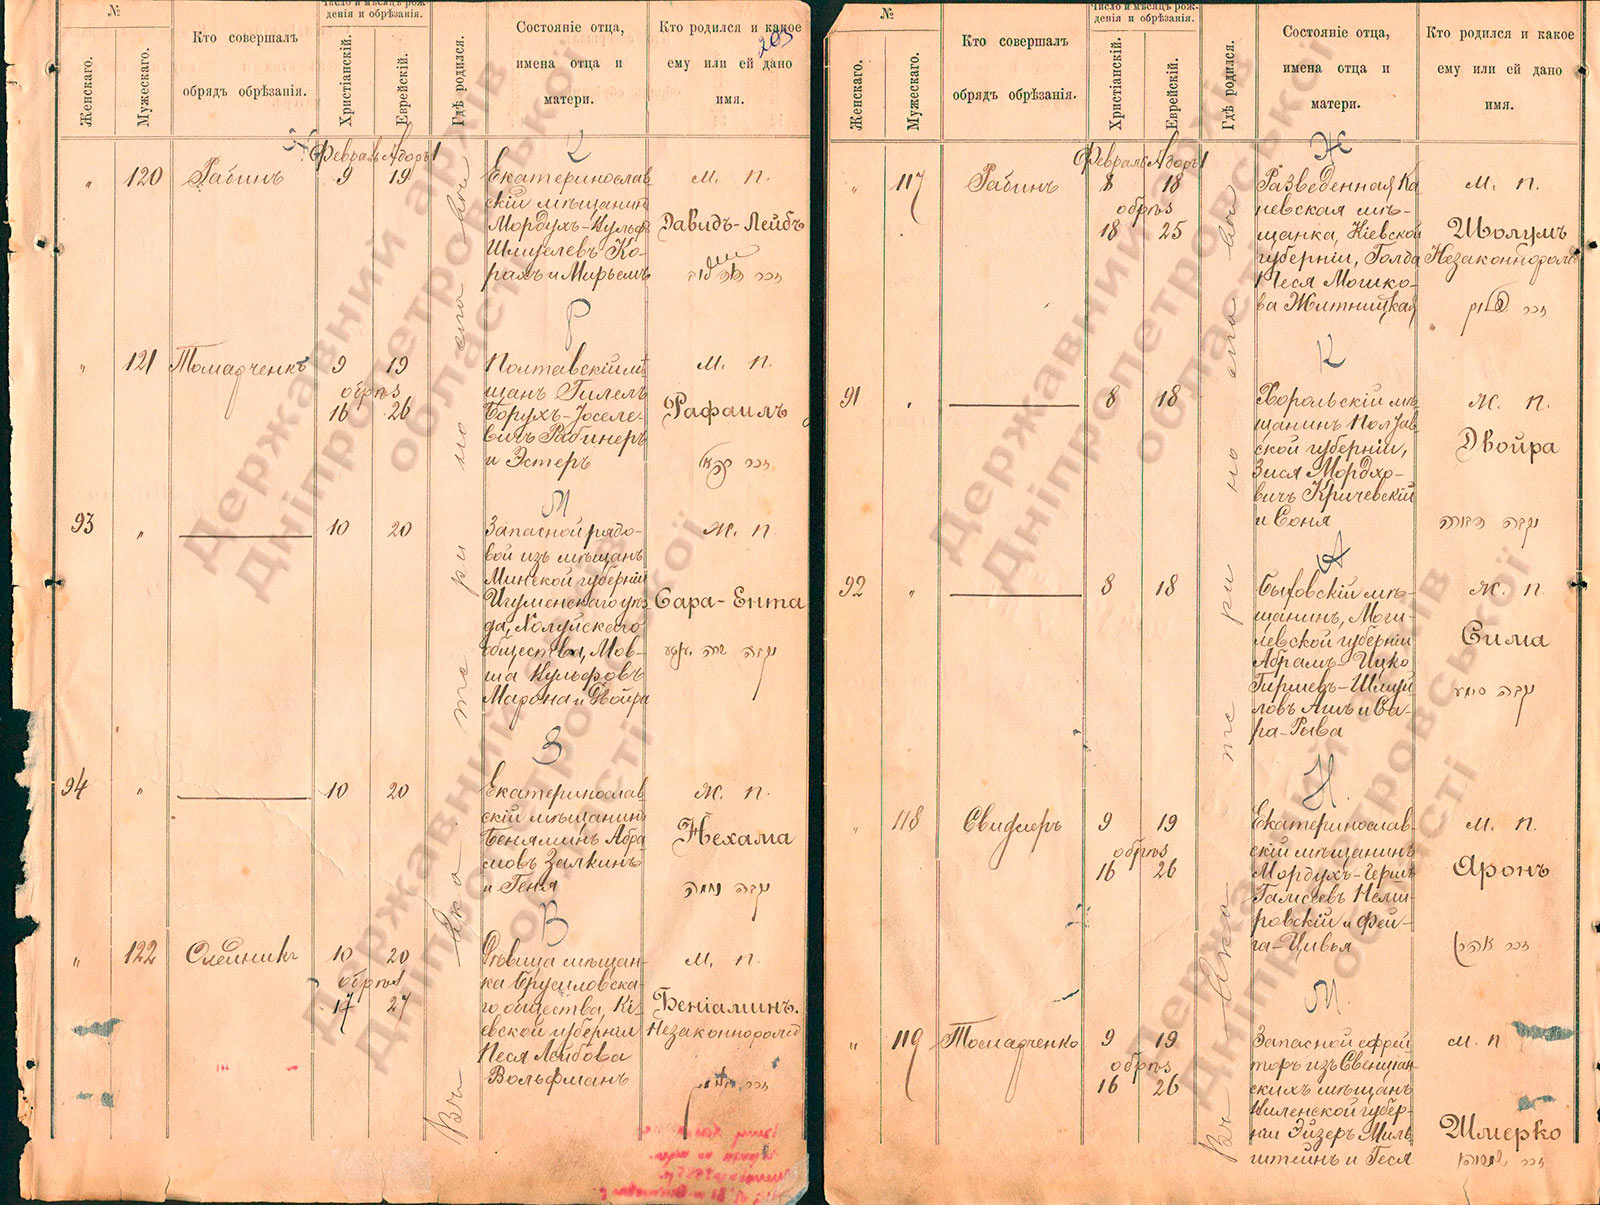 №
Женскаго.
Мужескаго.
Кто совершалъ
обрядъ обрѣзанія.
Число и мѣсяцъ рож-
денія и обрѣзанія.
Христіанскій.
Еврейскій.
Гдѣ родился.
Состояніе отца,
имена отца и
матери.
Кто родился и какое
ему или ей дано
имя.
205
Февраль Адоръ 1
К
" 120 Рабинъ 9 19
Екатеринослав
скій мѣщанинъ
Мордухъ-Вульфъ
Шмуелевъ Ко-
рахъ и Мирьемъ
М. П.
Давидъ-Лейбъ
Р
" 121 Томарченко 9 19
обрѣз
16 26
Полтавскій мѣ
щанъ Гилелъ
Борухъ-Іоселе-
вичъ Рабинеръ
и Эстеръ
М. П.
Рафаилъ
М
93 " 10 20
Запасной рядо-
вой изъ мѣщанъ
Минской губерніи
Игуменскаго уѣз
да, Холуйскаго
общества, Мов-
ша Вульфовъ
Марона и Двойра
Ж. П.
Сара-Ента
З
94 " 10 20
Екатеринослав
скій мѣщанинъ
Беняминъ Абра
мовъ Залкинъ
и Геня
Ж. П.
Нехама
נקבה נחמה
В
" 122 Олейникъ 10 20
обрѣз
17 27
Дѣвица мѣщан-
ка Брусиловска-
го общества, Кі-
евской губерніи
Песя Лейбова
Вольфманъ
М. П.
Беніаминъ.
Незаконнорожд
Въ Екатеринославѣ
№
Женскаго.
Мужескаго.
Кто совершалъ
обрядъ обрѣзанія.
Число и мѣсяцъ рож-
денія и обрѣзанія.
Христіанскій.
Еврейскій.
Гдѣ родился.
Состояніе отца,
имена отца и
матери.
Кто родился и какое
ему или ей дано
имя.
Февраль Адоръ 1
Ж
" 117 Рабинъ 8 18
обрѣз
18 25
Разведенная Ка
невская мѣ-
щанка, Кіевской
губерніи, Голда
Песя Мошко-
ва Житницкая
М. П.
Шолумъ
Незаконнорожд
К
91 " 8 18
Хорольскій мѣ
щанинъ Полтав
ской губерніи,
Зися Мордхо-
вичъ Кричевскій
и Соня
Ж. П.
Двойра
נקבה דוורה
А
92 " 8 18
Быховскій мѣ-
щанинъ, Моги-
левской губерніи
Абрамъ-Ицко
Гиршевъ-Шмуй
ловъ Ашъ и Са-
ра-Рыва
Ж. П.
Сима
נקבה סימע
Н.
" 118 Свидлеръ 9 19
обрѣз
16 26
Екатеринослав-
скій мѣщанинъ
Мордухъ-Гершъ
Неми-
ровскій и Фей-
га-Цивья
М. П.
Аронъ
זכר אהרן
М.
" 119 Томарченко 9 19
обрѣз
16 26
Запасной ефрей
торъ изъ Свенцян-
скихъ мѣщанъ
Виленской губер-
ніи Эйзеръ Миль
штейнъ и Геся
М. П
Шмерко
Въ Екатеринославѣ
Державний архів
Дніпропетровської
області